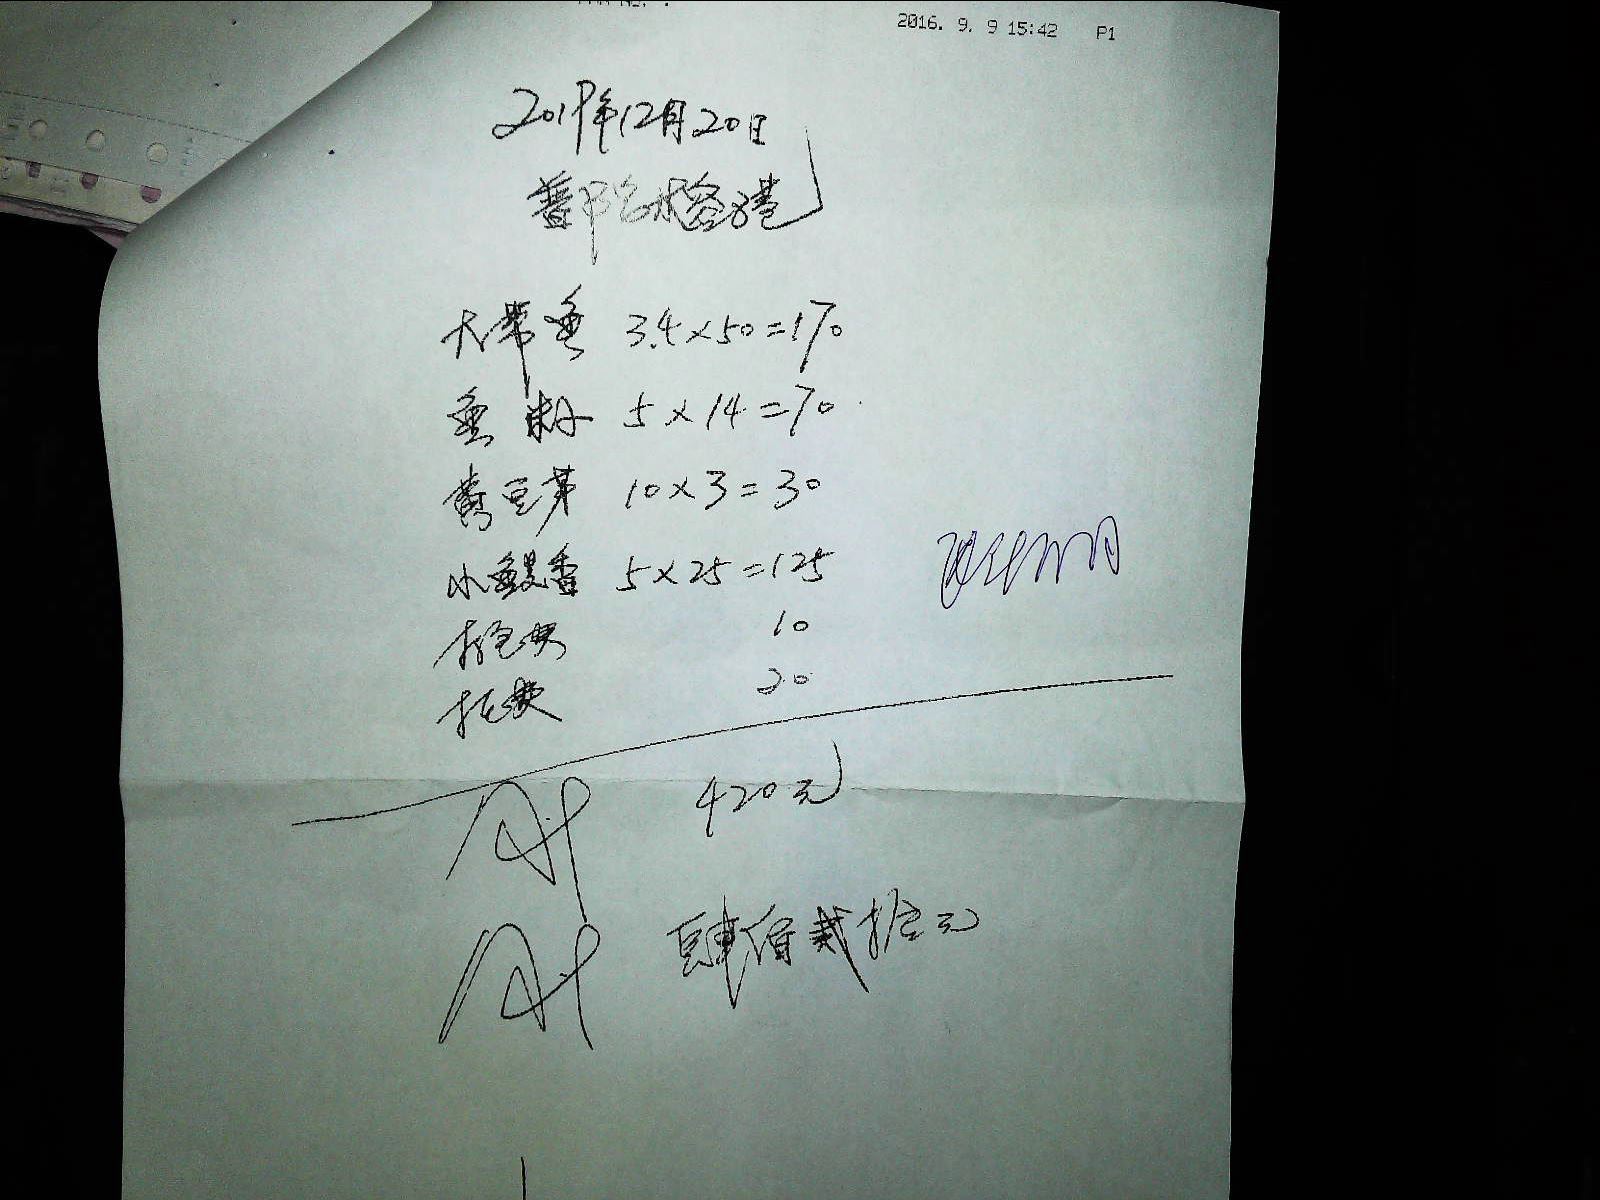 2016. 9. 9 15:42 P1
2019年12月20日
大带鱼 3.4×50=170
鱼籽 5×14=70
黄豆芽 10×3=30
小鳗香 5×25=125
10
托费 20
420元
肆佰贰拾元